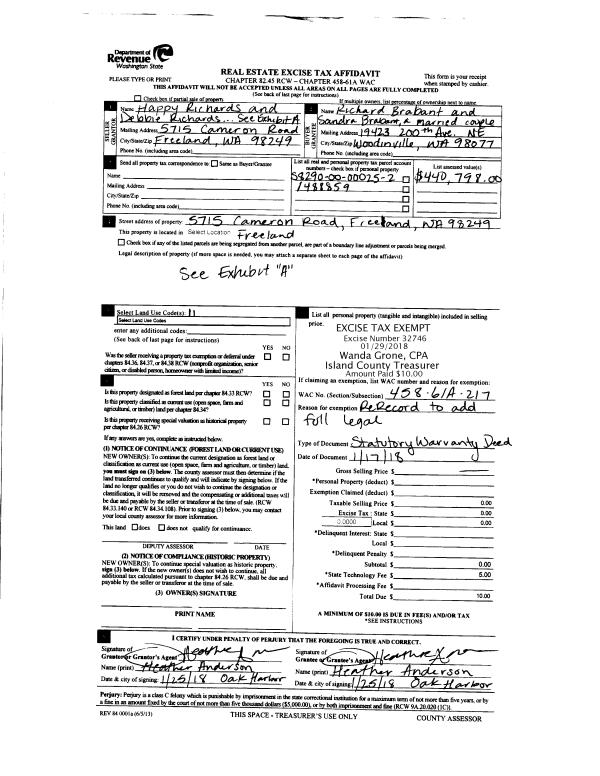 Department of
Revenue
Washington State
REAL ESTATE EXCISE TAX AFFIDAVIT
This form is your receipt
PLEASE TYPE OR PRINT
CHAPTER 82.45 RCW – CHAPTER 458-61A WAC
when stamped by cashier.
THIS AFFIDAVIT WILL NOT BE ACCEPTED UNLESS ALL AREAS ON ALL PAGES ARE FULLY COMPLETED
(See back of last page for instructions)
Check box if partial sale of property
If multiple owners, list percentage of ownership next to name.
SELLER GRANTOR
Name Happy Richards and
Debbie Richards... See Exhibit A
Mailing Address 5715 Cameron Road
City/State/Zip Freeland, WA 98249
Phone No. (including area code)
BUYER GRANTEE
Name Richard Brabant and
Sandra Brabant, a married couple
Mailing Address 19423 200th Ave. NE
City/State/Zip Woodinville, WA 98077
Phone No. (including area code)
Send all property tax correspondence to: Same as Buyer/Grantee
Name
Mailing Address
City/State/Zip
Phone No. (including area code)
List all real and personal property tax parcel account
numbers – check box if personal property
S8290-00-00025-2
1488859
List assessed value(s)
$440,798.00
Street address of property: 5715 Cameron Road, Freeland, WA 98249
This property is located in Select Location Freeland
Check box if any of the listed parcels are being segregated from another parcel, are part of a boundary line adjustment or parcels being merged.
Legal description of property (if more space is needed, you may attach a separate sheet to each page of the affidavit)
See Exhibit "A"
Select Land Use Code(s): 11
Select Land Use Codes
enter any additional codes:
(See back of last page for instructions)
YES NO
Was the seller receiving a property tax exemption or deferral under
chapters 84.36, 84.37, or 84.38 RCW (nonprofit organization, senior
citizen, or disabled person, homeowner with limited income)?
YES NO
Is this property designated as forest land per chapter 84.33 RCW?
Is this property classified as current use (open space, farm and
agricultural, or timber) land per chapter 84.34?
Is this property receiving special valuation as historical property
per chapter 84.26 RCW?
If any answers are yes, complete as instructed below.
(1) NOTICE OF CONTINUANCE (FOREST LAND OR CURRENT USE)
NEW OWNER(S): To continue the current designation as forest land or
classification as current use (open space, farm and agriculture, or timber) land,
you must sign on (3) below. The county assessor must then determine if the
land transferred continues to qualify and will indicate by signing below. If the
land no longer qualifies or you do not wish to continue the designation or
classification, it will be removed and the compensating or additional taxes will
be due and payable by the seller or transferor at the time of sale. (RCW
84.33.140 or RCW 84.34.108). Prior to signing (3) below, you may contact
your local county assessor for more information.
This land does does not qualify for continuance.
DEPUTY ASSESSOR DATE
(2) NOTICE OF COMPLIANCE (HISTORIC PROPERTY)
NEW OWNER(S): To continue special valuation as historic property,
sign (3) below. If the new owner(s) does not wish to continue, all
additional tax calculated pursuant to chapter 84.26 RCW, shall be due and
payable by the seller or transferor at the time of sale.
(3) OWNER(S) SIGNATURE
PRINT NAME
List all personal property (tangible and intangible) included in selling
price.
EXCISE TAX EXEMPT
Excise Number 32746
01/29/2018
Wanda Grone, CPA
Island County Treasurer
Amount Paid $10.00
If claiming an exemption, list WAC number and reason for exemption:
WAC No. (Section/Subsection) 458-61A-217
Reason for exemption ReRecord to add
full legal
Type of Document Statutory Warranty Deed
Date of Document 1/17/18
Gross Selling Price $
*Personal Property (deduct) $
Exemption Claimed (deduct) $
Taxable Selling Price $ 0.00
Excise Tax : State $ 0.00
0.0000 Local $ 0.00
*Delinquent Interest: State $
Local $
*Delinquent Penalty $
Subtotal $ 0.00
*State Technology Fee $ 5.00
*Affidavit Processing Fee $
Total Due $ 10.00
A MINIMUM OF $10.00 IS DUE IN FEE(S) AND/OR TAX
*SEE INSTRUCTIONS
I CERTIFY UNDER PENALTY OF PERJURY THAT THE FOREGOING IS TRUE AND CORRECT.
Signature of
Grantor or Grantor's Agent
Name (print) Heather Anderson
Date & city of signing: 1/25/18 Oak Harbor
Signature of
Grantee or Grantee's Agent
Name (print) Heather Anderson
Date & city of signing: 1/25/18 Oak Harbor
Perjury: Perjury is a class C felony which is punishable by imprisonment in the state correctional institution for a maximum term of not more than five years, or by
a fine in an amount fixed by the court of not more than five thousand dollars ($5,000.00), or by both imprisonment and fine (RCW 9A.20.020 (1C)).
REV 84 0001a (6/5/13)
THIS SPACE - TREASURER'S USE ONLY
COUNTY ASSESSOR